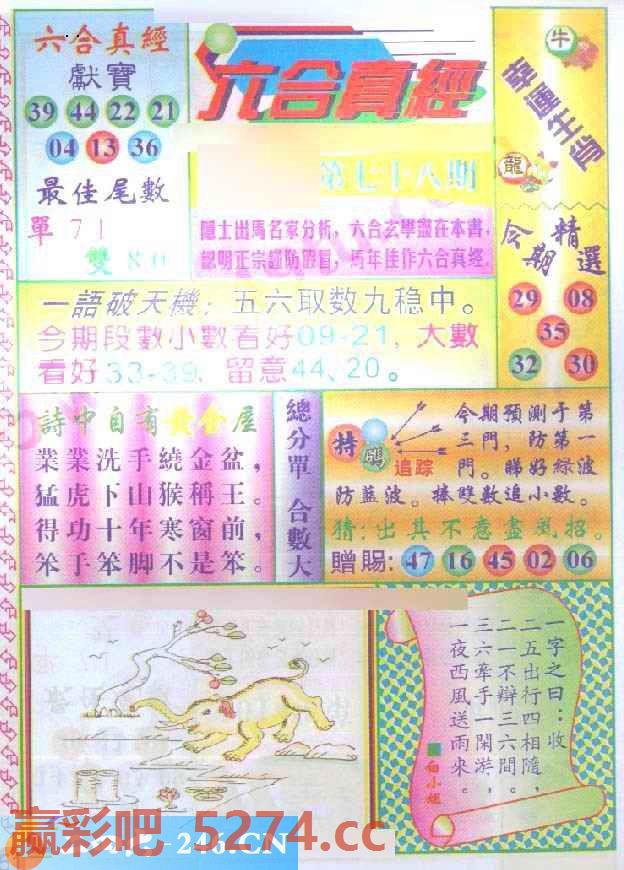 六合真經
獻寶
39 44 22 21
04 13 36
最佳尾數
單 71
雙 80
六合真經
第七十八期
隱士出馬名家分析，六合玄學盡在本書，
認明正宗謹防假冒，馬年佳作六合真經
牛
幸運生肖
龍
今期精選
29 08
35
32 30
一語破天機：五六取数九稳中。
今期段數小數看好09-21，大數
看好33-39、留意44、20。
詩中自有黃金屋
業業洗手繞金盆，
猛虎下山猴稱王。
得功十年寒窗前，
笨手笨脚不是笨。
總分單 合數大
特碼
追踪
今期預測于第
三門，防第一
門。睇好緑波
防藍波。捧雙數追小數。
猜：出其不意盡氣招。
贈賜: 47 16 45 02 06
一字之曰：收
二五出行四相隨，
二一不辦三六間，
三六牽手一閑游，
一夜西風送雨來。
白小姐
赢彩吧-5274.cc
-246.CN